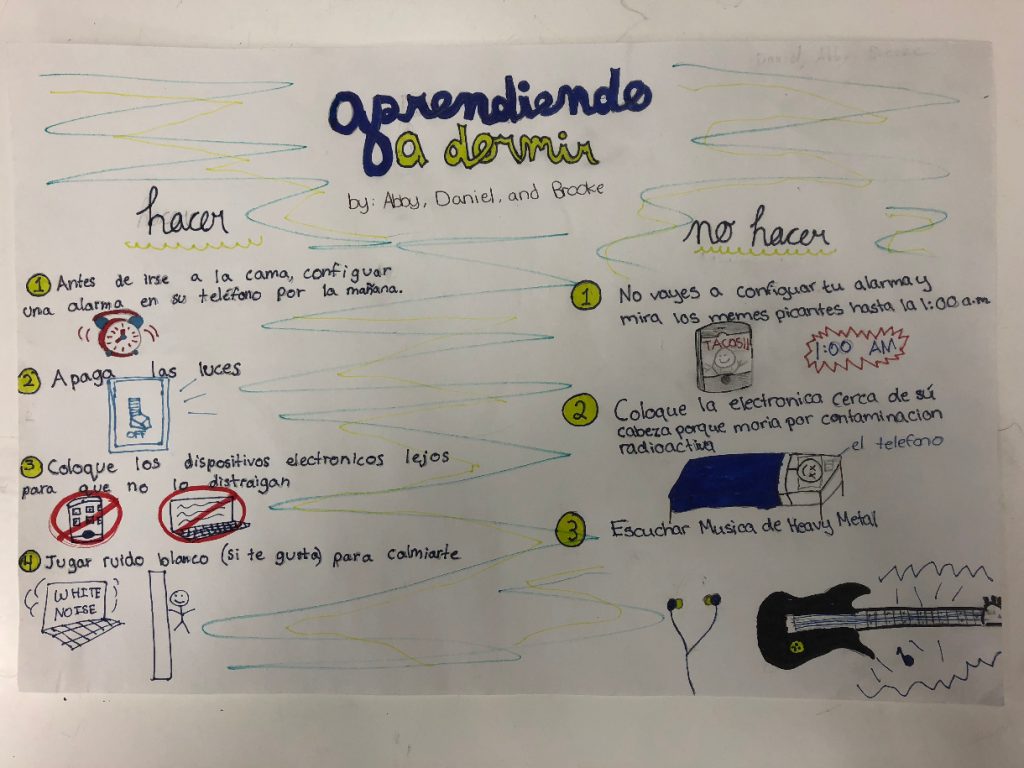 aprendiendo
a dermir
by: Abby, Daniel, and Brooke
hacer
1 Antes de irse a la cama, configuar
una alarma en su teléfono por la mañana.
2 Apaga las luces
OFF
3 Coloque los dispositivos electronicos lejos
para que no lo distraigan
4 Jugar ruido blanco (si te gusta) para calmiarte
WHITE
NOISE
no hacer
1 No vayes a configuar tu alarma y
mira los memes picantes hasta la 1:00 a.m
TACOS!!
1:00 AM
2 Coloque la electronica cerca de sú
cabeza porque moria por contaminacion
radioactiva
el telefono
3 Escuchar Musica de Heavy Metal